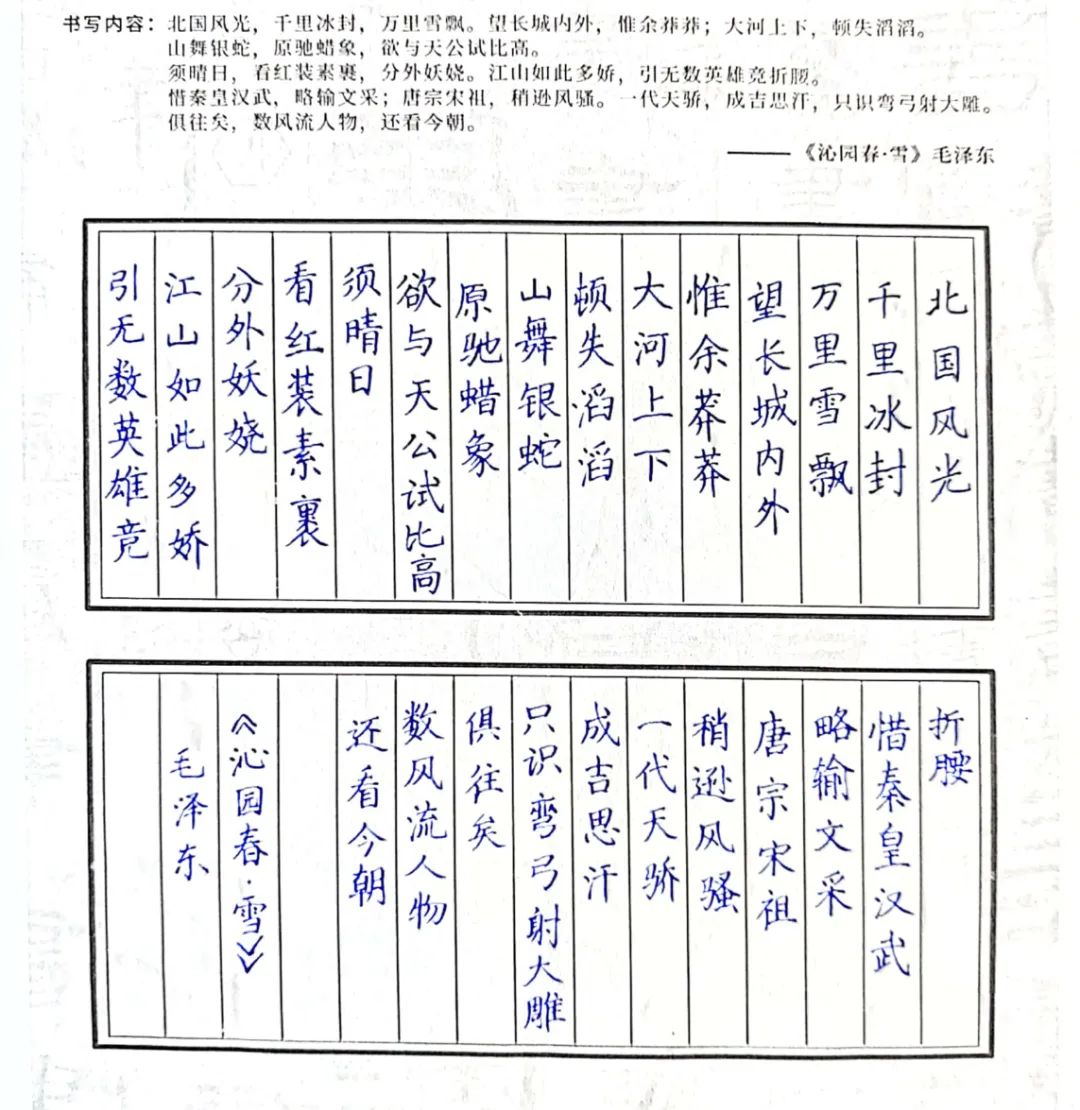 书写内容：北国风光，千里冰封，万里雪飘。望长城内外，惟余莽莽；大河上下，顿失滔滔。
山舞银蛇，原驰蜡象，欲与天公试比高。
须晴日，看红装素裹，分外妖娆。江山如此多娇，引无数英雄竞折腰。
惜秦皇汉武，略输文采；唐宗宋祖，稍逊风骚。一代天骄，成吉思汗，只识弯弓射大雕。
俱往矣，数风流人物，还看今朝。
——《沁园春·雪》毛泽东
北国风光
千里冰封
万里雪飘
望长城内外
惟余莽莽
大河上下
顿失滔滔
山舞银蛇
原驰蜡象
欲与天公试比高
须晴日
看红装素裹
分外妖娆
江山如此多娇
引无数英雄竞
折腰
惜秦皇汉武
略输文采
唐宗宋祖
稍逊风骚
一代天骄
成吉思汗
只识弯弓射大雕
俱往矣
数风流人物
还看今朝
《沁园春·雪》
毛泽东